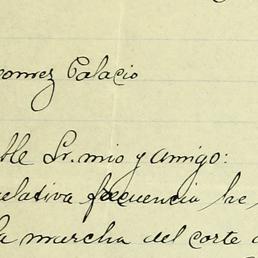 Gomez Palacio
ble Sr. mio y amigo:
relativa frecuencia he
la marcha del corte d